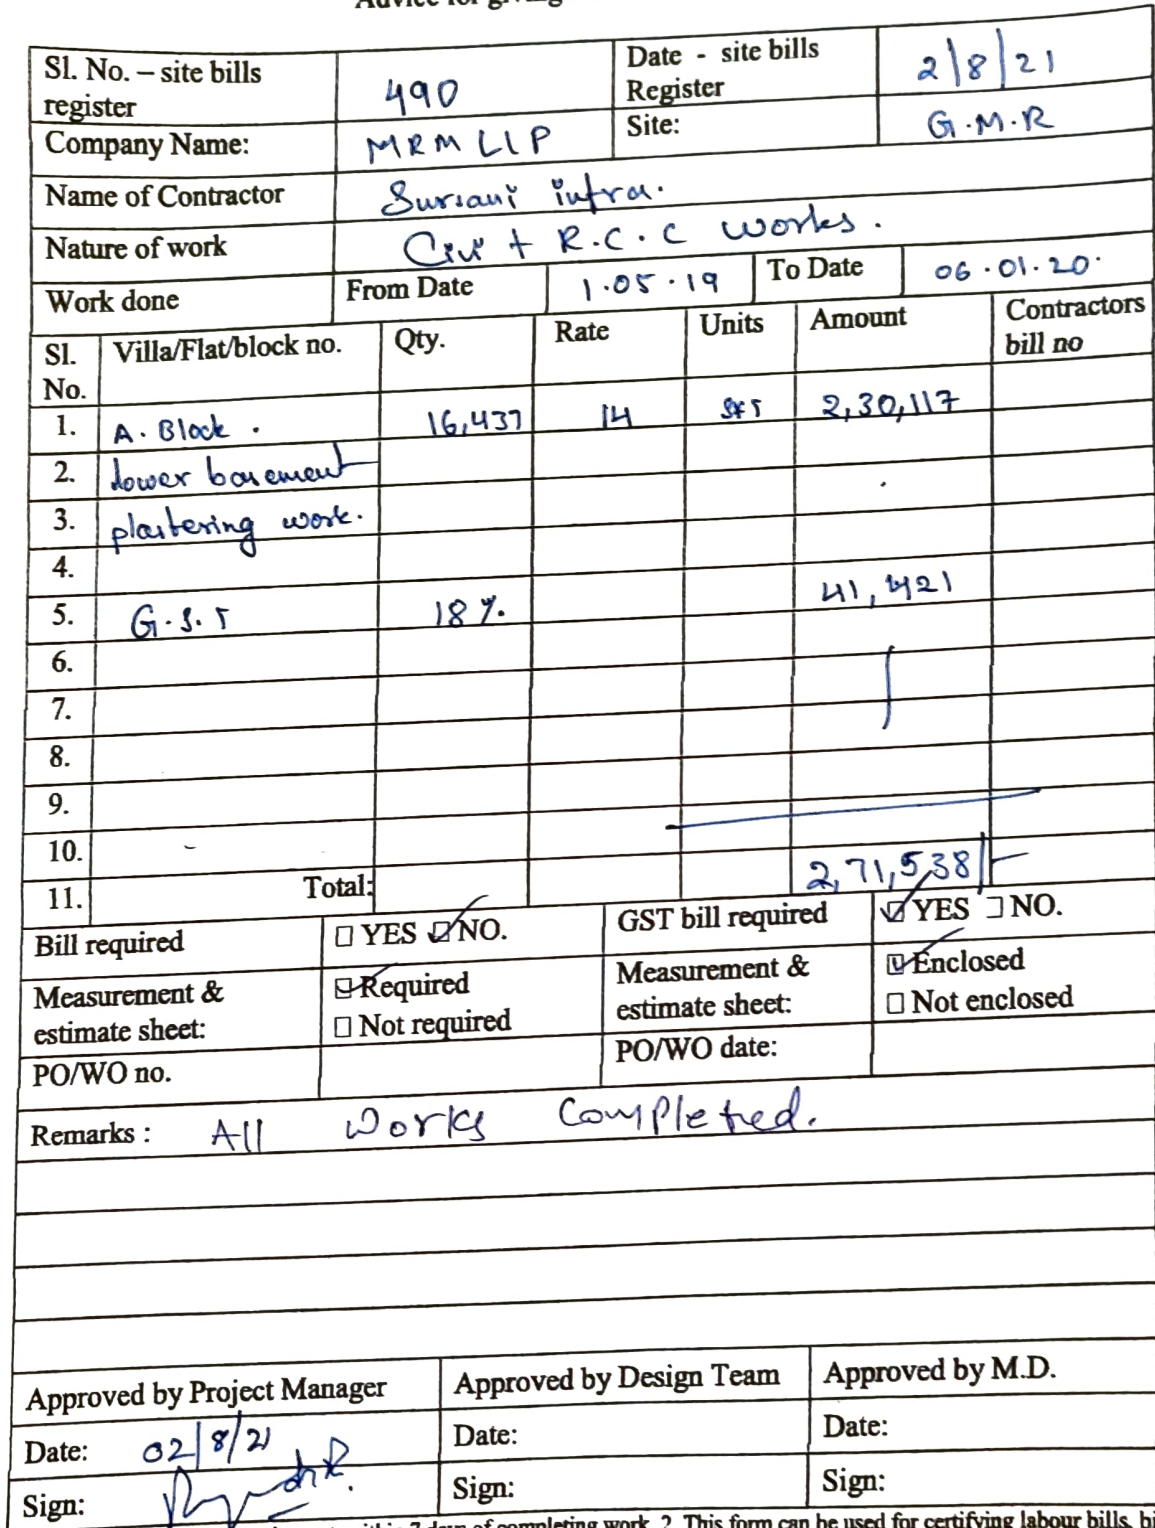 Sl. No. – site bills register 490 Date - site bills Register 2/8/21
Company Name: MRM LLP Site: G.M.R
Name of Contractor Sursani infra.
Nature of work Civi + R.C.C works.
Work done From Date 1.05.19 To Date 06.01.20.
Sl. No. Villa/Flat/block no. Qty. Rate Units Amount Contractors bill no
1. A. Block . 16,437 14 SFT 2,30,117
2. lower basement
3. plastering work.
4.
5. G.S.T 18 %. 41,421
6.
7.
8.
9.
10.
11. Total: 2,71,538/-
Bill required □ YES ☑ NO. GST bill required ☑ YES □ NO.
Measurement & estimate sheet: ☑ Required □ Not required Measurement & estimate sheet: ☑ Enclosed □ Not enclosed
PO/WO no. PO/WO date:
Remarks : All works Completed.
Approved by Project Manager Approved by Design Team Approved by M.D.
Date: 02/8/21 Date: Date:
Sign: Sign: Sign:
days of completing work. 2. This form can be used for certifying labour bills,